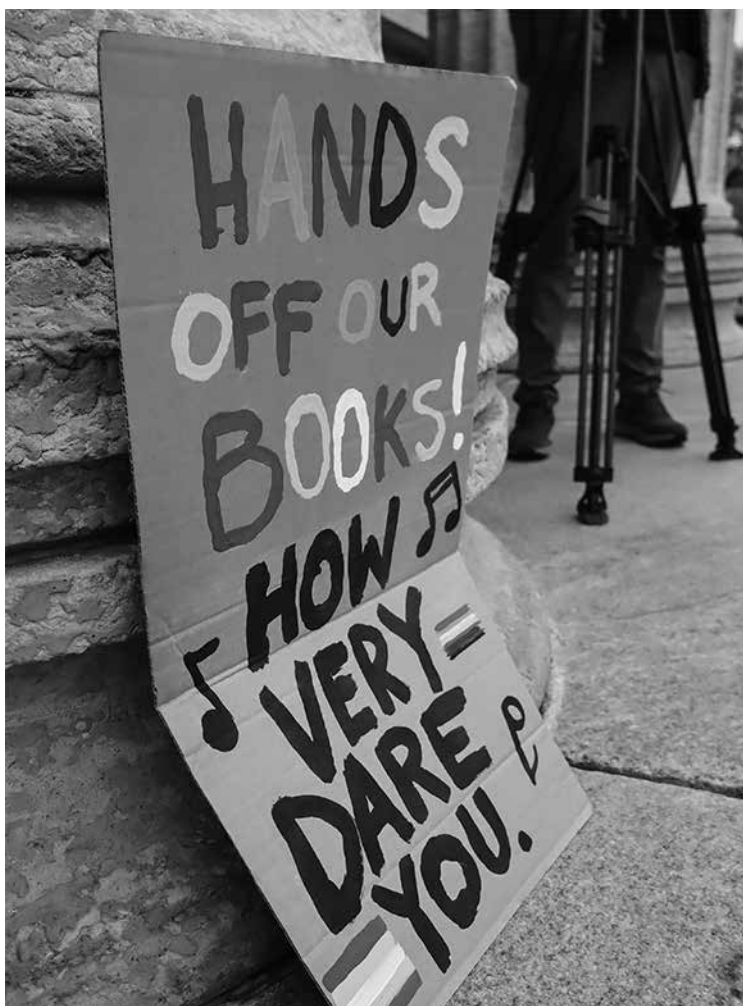 HANDS
OFF OUR
BOOKS!
HOW
VERY
DARE
YOU.